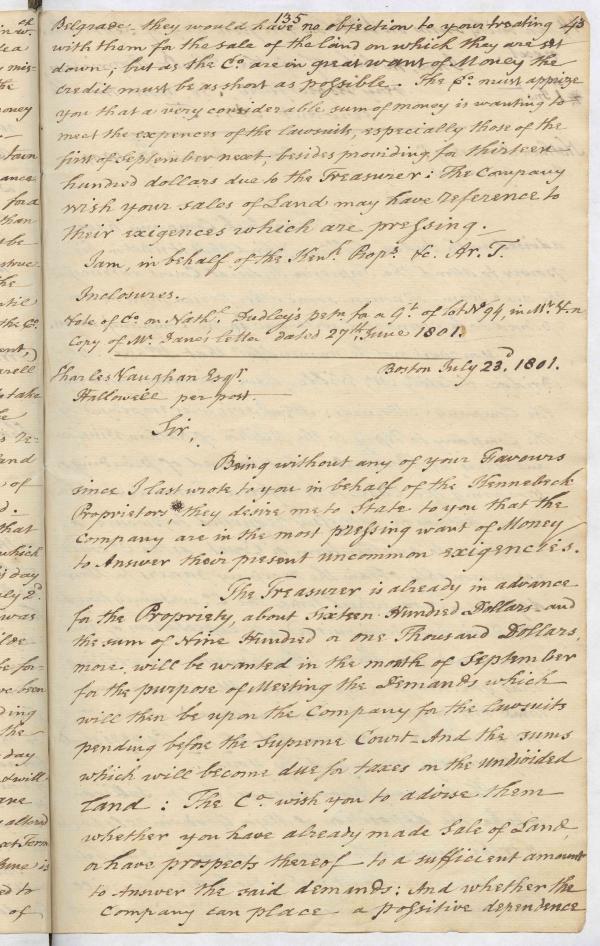 135
43
Belgrade they would have no objection to your treating
with them for the sale of the land on which they are set
down; but as the Co. are in great want of Money the
credit must be as short as possible. The Co. must apprize
you that a very considerable sum of money is wanting to
meet the expences of the lawsuits, especially those of the
first of September next, besides providing for thirteen
hundred dollars due to the Treasurer: The Company
wish your sales of Land may have reference to
their exigences which are pressing.
I am, in behalf of the Kenk. Props. &c. Ar. T.
Inclosures.
Vote of Co. on Nathl. Dudley's petn. for a Gt. of lot No. 94, in Mt. V—n
Copy of Mr. Dane's letter dated 27th. June 1801.
Charles Vaughan Esqr. Boston July 23d. 1801.
Hallowell per post.
Sir,
Being without any of your Favours
since I last wrote to you in behalf of the Kennebeck
Proprietors, they desire me to State to you that the
Company are in the most pressing want of Money
to Answer their present uncommon exigencies.
The Treasurer is already in advance
for the Propriety, about Sixteen Hundred Dollars and
the sum of Nine Hundred or one Thousand Dollars,
more, will be wanted in the month of September
for the purpose of Meeting the Demands which
will then be upon the Company for the lawsuits
pending before the Supreme Court — And the sums
which will become due for taxes on the undivided
land: The Co. wish you to advise them
whether you have already made Sale of Land,
or have prospects thereof — to a sufficient amount
to Answer the said demands: And whether the
Company can place a possitive dependence